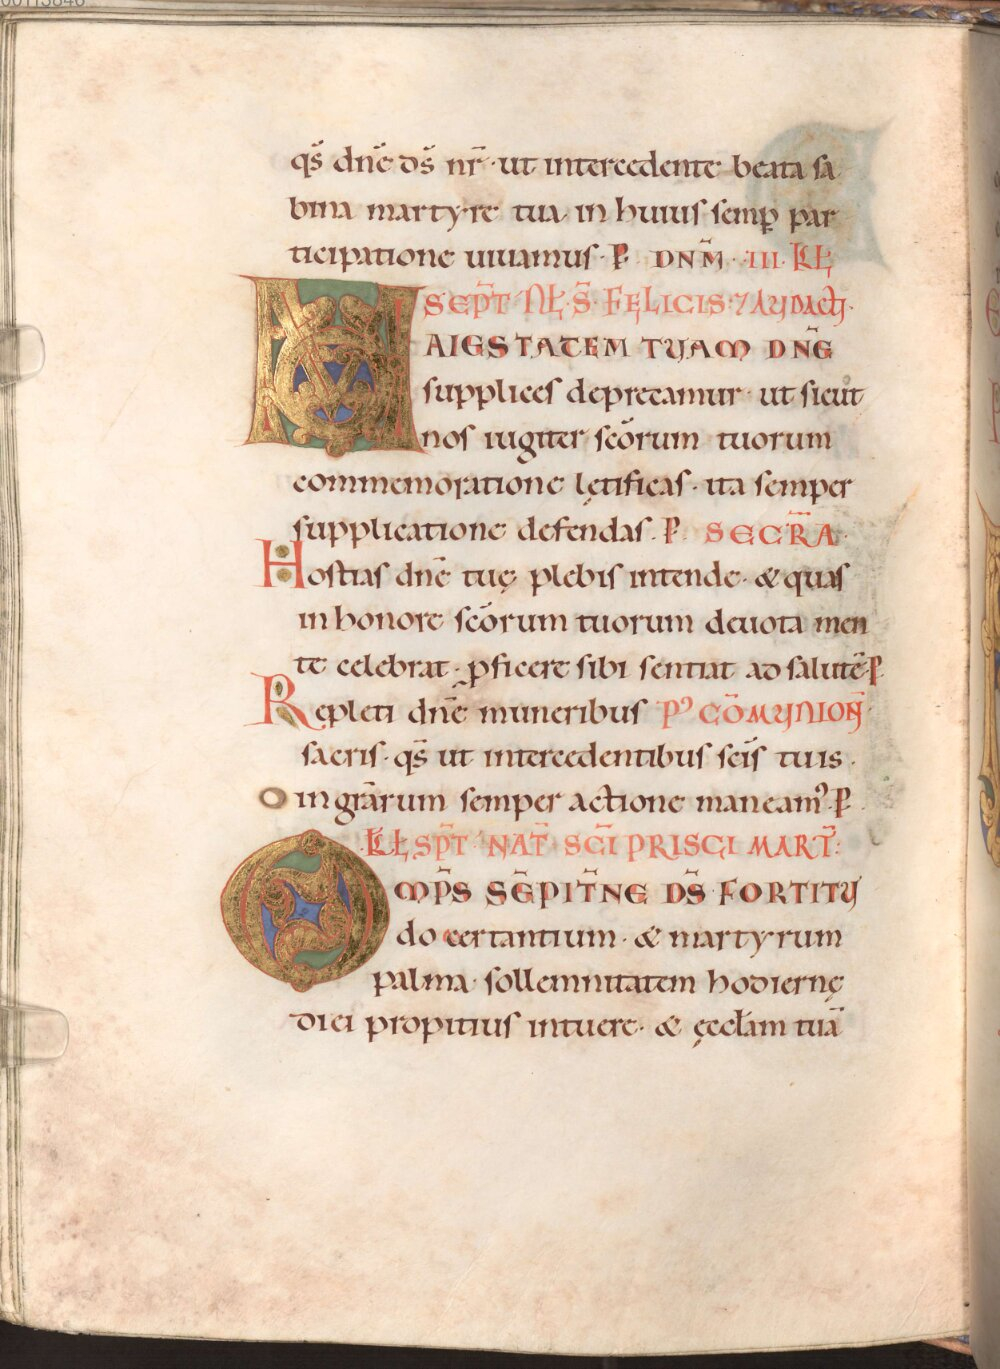 qs̄ dnē ds̄ nr̄ · ut intercedente beata sa
bina martyre tua in huius semp par
ticipatione uiuamus · P DNM̄ · III · KŁ
SEPT̄ · NŁ · S̄ · FELICIS · ⁊ AUDACTI ·
MAIESTATEM TUAM DN̄E
supplices deprecamur · ut sicut
nos iugiter sc̄orum tuorum
commemoratione lętificas · ita semper
supplicatione defendas . P . SECR̄A
Hostias dnē tuę plebis intende · & quas
in honore sc̄orum tuorum deuota men
te celebrat · ꝓficere sibi sentiat ad salutē · P
Repleti dnē muneribus Pꝰ CŌMUNION̄ ·
sacris · qs̄ ut intercedentibus scīs tuis ·
in gr̄arum semper actione maneamꝰ · P .
KŁ SPT̄ · NAT̄ SC̄I PRISCI MART̄ :
OMP̄S SĒPIT̄NE DS̄ FORTITU
do certantium · & martyrum
palma · sollemnitatem hodiernę
diei propitius intuere · & ęccl̄am tuā